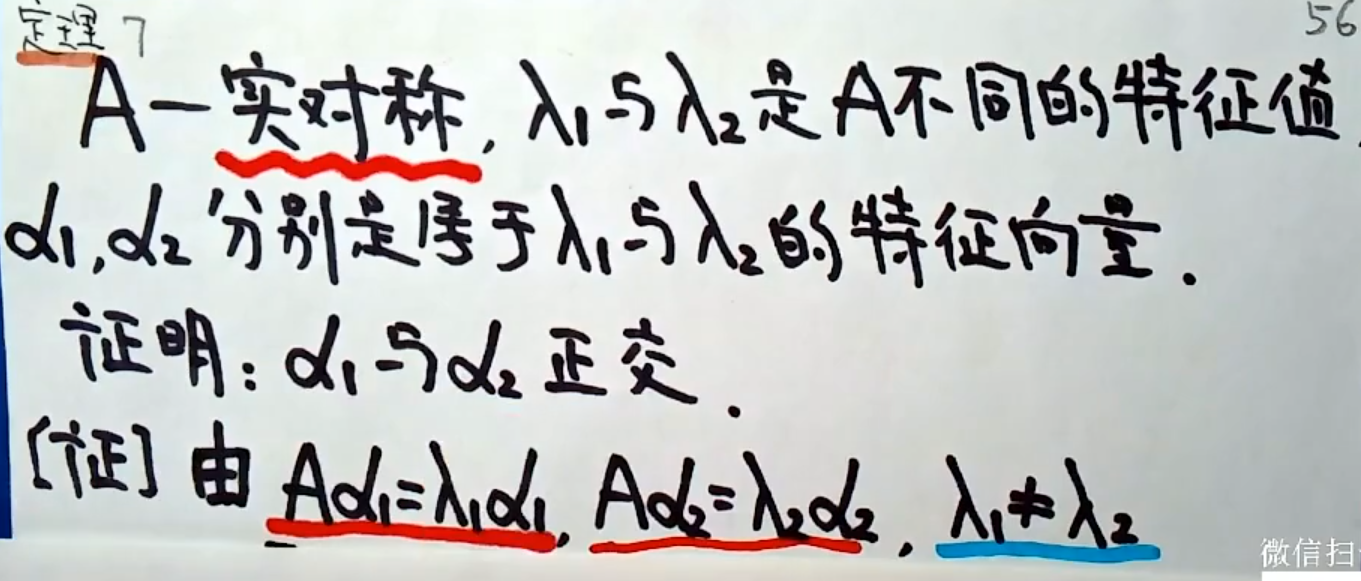 定理 7
56
A一实对称, λ₁与λ₂是A不同的特征值,
α₁,α₂分别是属于λ₁与λ₂的特征向量.
证明: α₁与α₂正交.
[证] 由 Aα₁=λ₁α₁, Aα₂=λ₂α₂, λ₁≠λ₂
微信扫